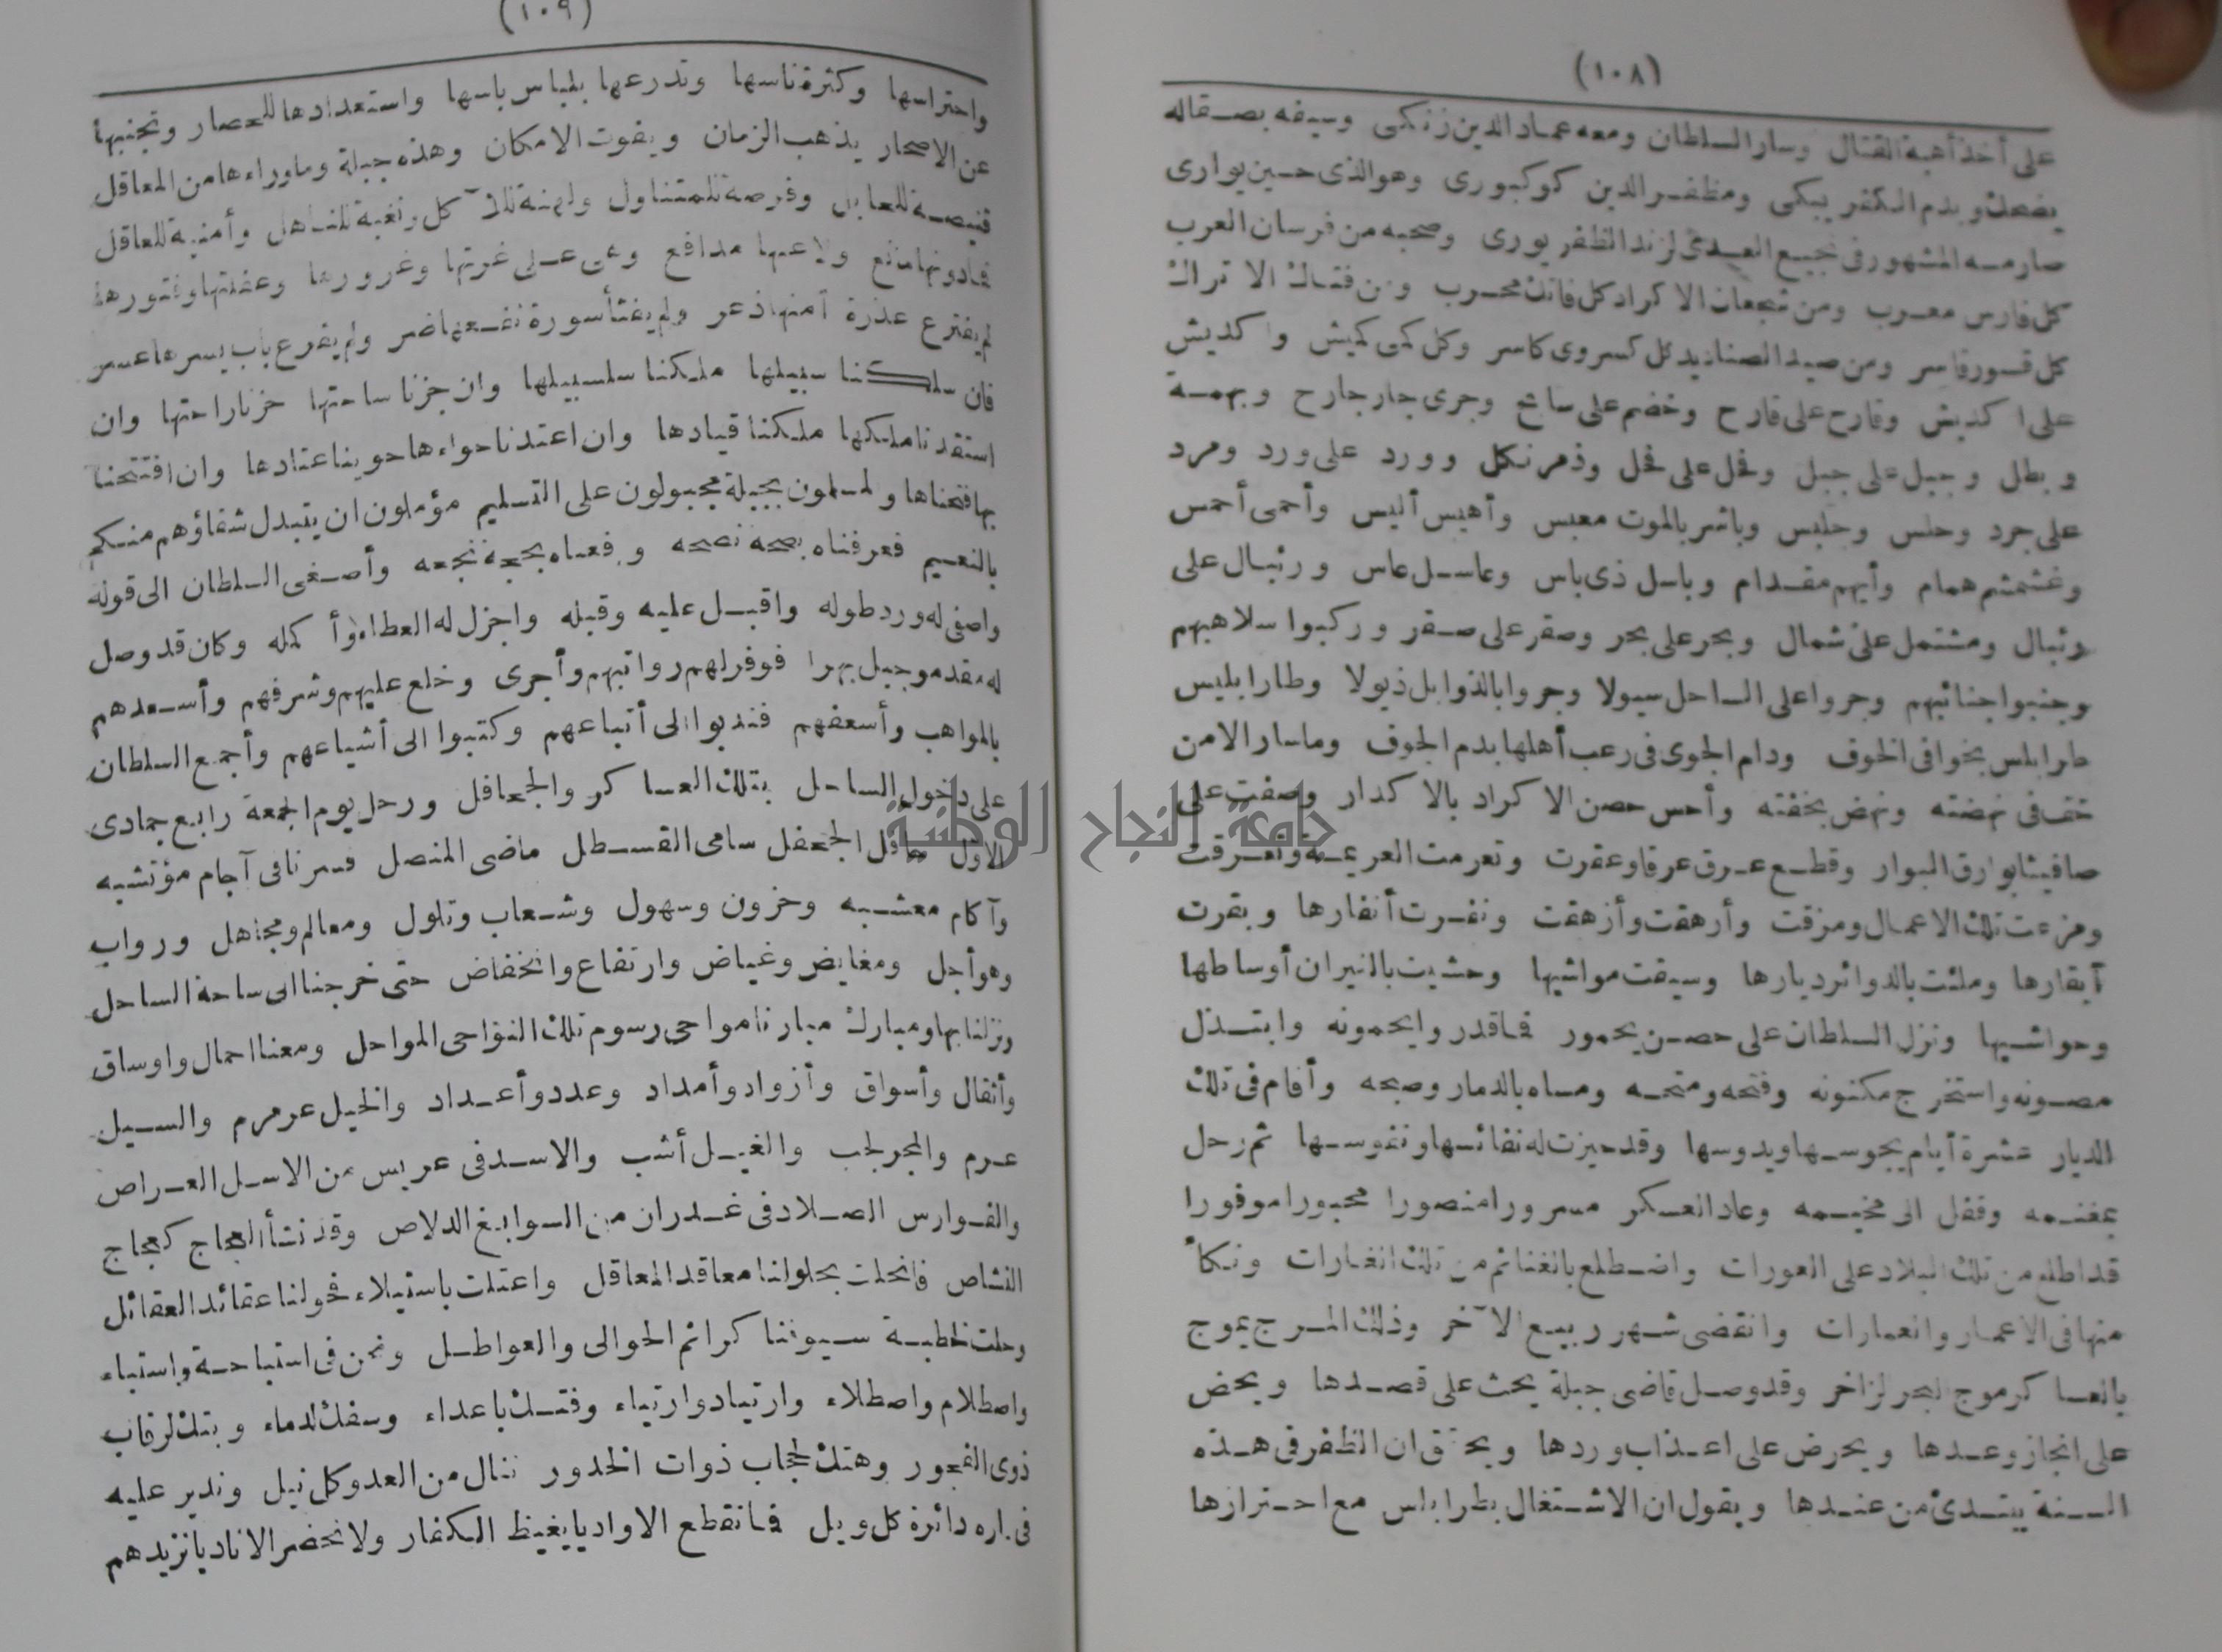 (١٠٨)
على أخذ أهبة القتال وسار السلطان ومعه عماد الدين زنكى وسيفه بصقاله
يضحك وبدم الكفر يبكى ومظفر الدين كوكبورى وهو الذى حين يوارى
صارمه المشهور فى نجيع العدى لزند الظفر يورى وصحبه من فرسان العرب
كل فارس معرب ومن شجعان الاكراد كل فاتك محرب ومن فتاك الاتراك
كل قسور قاسر ومن صيد الصناديد كل كسروى كاسر وكل كمى كميش واكديش
على اكديش وقارح على قارح وخضم على سابح وجرى جار جارح وبهمة
وبطل وجبل على جبل وفحل على فحل وذمر نكل وورد على ورد ومرد
على جرد وحلس وحلبس وباشر بالموت معبس وأهيس أليس وأحمى أحمس
وغشمشم همام وأيهم مقدام وباسل ذى باس وعاسل عاس ورئبال على
رئبال ومشتمل على شمال وبحر على بحر وصقر على صقر وركبوا سلاهبهم
وجنبوا جنائبهم وجروا على الساحل سيولا وجروا بالذوابل ذيولا وطار ابليس
طرابلس بخوافى الخوف ودام الجوى فى رعب أهلها بدم الجوف وماسار الامن
خف فى نهضته ونهض بخفته وأحس حصن الاكراد بالاكدار وصفت على
صافيثا بوارق البوار وقطع عرق عرقا وعقرت وتعرمت العريمة وتعرقت
ومزعت تلك الاعمال ومزقت وأرهقت وأزهقت ونفرت أنفارها وبقرت
أبقارها وملئت بالدوائر ديارها وسيقت مواشيها وحشيت بالنيران أوساطها
وحواشيها ونزل السلطان على حصن يحمور فما قدروا يحمونه وابتذل
مصونه واستخرج مكنونه وفتحه ومتحه ومساه بالدمار وصبحه وأقام فى تلك
الديار عشرة أيام يجوسها ويدوسها وقد حيزت له نفائسها ونفوسها ثم رحل
بمغنمه وقفل الى مخيمه وعاد العسكر مسرورا منصورا محبورا موفورا
قد اطلع من تلك البلاد على العورات واضطلع بالغنائم من تلك الغارات ونكأ
منها فى الاعمار والعمارات وانقضى شهر ربيع الآخر وذلك المرج يموج
بالعساكر موج البحر لزاخر وقد وصل قاضى جبلة يحث على قصدها ويحض
على انجاز وعدها ويحرض على اعذاب وردها ويحقق ان الظفر فى هذه
السنة يبتدئ من عندها ويقول ان الاشتغال بطرابلس مع احترازها
(١٠٩)
واحتراسها وكثرة ناسها وتدرعها بلباس باسها واستعدادها للحصار وتجنبها
عن الاصحار يذهب الزمان ويفوت الامكان وهذه جبلة وماوراءها من المعاقل
قنيصة للحابل وفرصة للمتناول ولهنة للآكل ونغبة للناهل وأمنية للعاقل
فمادونها مانع ولاعنها مدافع وهى على غرتها وغرورها وعفتها وفتورها
لم يفترع عذرة أمنها ذعر ولم يفثأ سورة نفعها ضر ولم يقرع باب يسرها عسر
فان سلكنا سبيلها ملكنا سلسبيلها وان جزنا ساحتها حزنا راحتها وان
استقدنا ملكها ملكنا قيادها وان اعتدنا حواءها حوينا عتادها وان افتتحنا
بها فتحناها ولمسلمون بجبلة مجبولون على التسليم مؤملون ان يتبدل شقاؤهم منكم
بالنعيم فعرفناه بصحة نصحه ونفعناه بحجة نجحه وأصغى السلطان الى قوله
واصفى له ورد طوله واقبل عليه وقبله واجزل له العطاء وأكمله وكان قد وصل
له مقدمو جبل بهرا فوفر لهم رواتبهم وأجرى وخلع عليهم وشرفهم وأسعدهم
بالمواهب وأسعفهم فندبوا الى أتباعهم وكتبوا الى أشياعهم وأجمع السلطان
على دخول الساحل بتلك العساكر والجحافل ورحل يوم الجمعة رابع جمادى
الاول حافل الجحفل سامى القسطل ماضى المنصل فسرنا فى آجام مؤتشبه
وآكام معشبه وحزون وسهول وشعاب وتلول ومعالم ومجاهل ورواب
وهواجل ومغايض وغياض وارتفاع وانخفاض حتى خرجنا الى ساحة الساحل
ونزلنا بها ومبارك مبارنا مواحى رسوم تلك النواحى المواحل ومعنا احمال واوساق
وأثقال وأسواق وأزواد وأمداد وعدد وأعداد والخيل عرمرم والسيل
عرم والمجر لجب والغيل أشب والاسد فى عريس من الاسل العراص
والفوارس الصلاد فى غدران من السوابغ الدلاص وقد نشأ العجاج كعجاج
النشاص فانحلت بحلولنا معاقد المعاقل واعتلت باستيلاء فحولنا عقائد العقائل
وحلت لخطبة سيوفنا كرائم الحوالى والعواطل ونحن فى استباحة واستباء
واصطلام واصطلاء وارتياد وارتياء وفتك باعداء وسفك لدماء وبتك لرقاب
ذوى الفجور وهتك لحجاب ذوات الخدور ننال من العدو كل نيل وندير عليه
فى داره دائرة كل ويل فما نقطع الا واديا يغيظ الكفار ولا نحضر الا ناديا نزيدهم
جامعة النجاح الوطنية